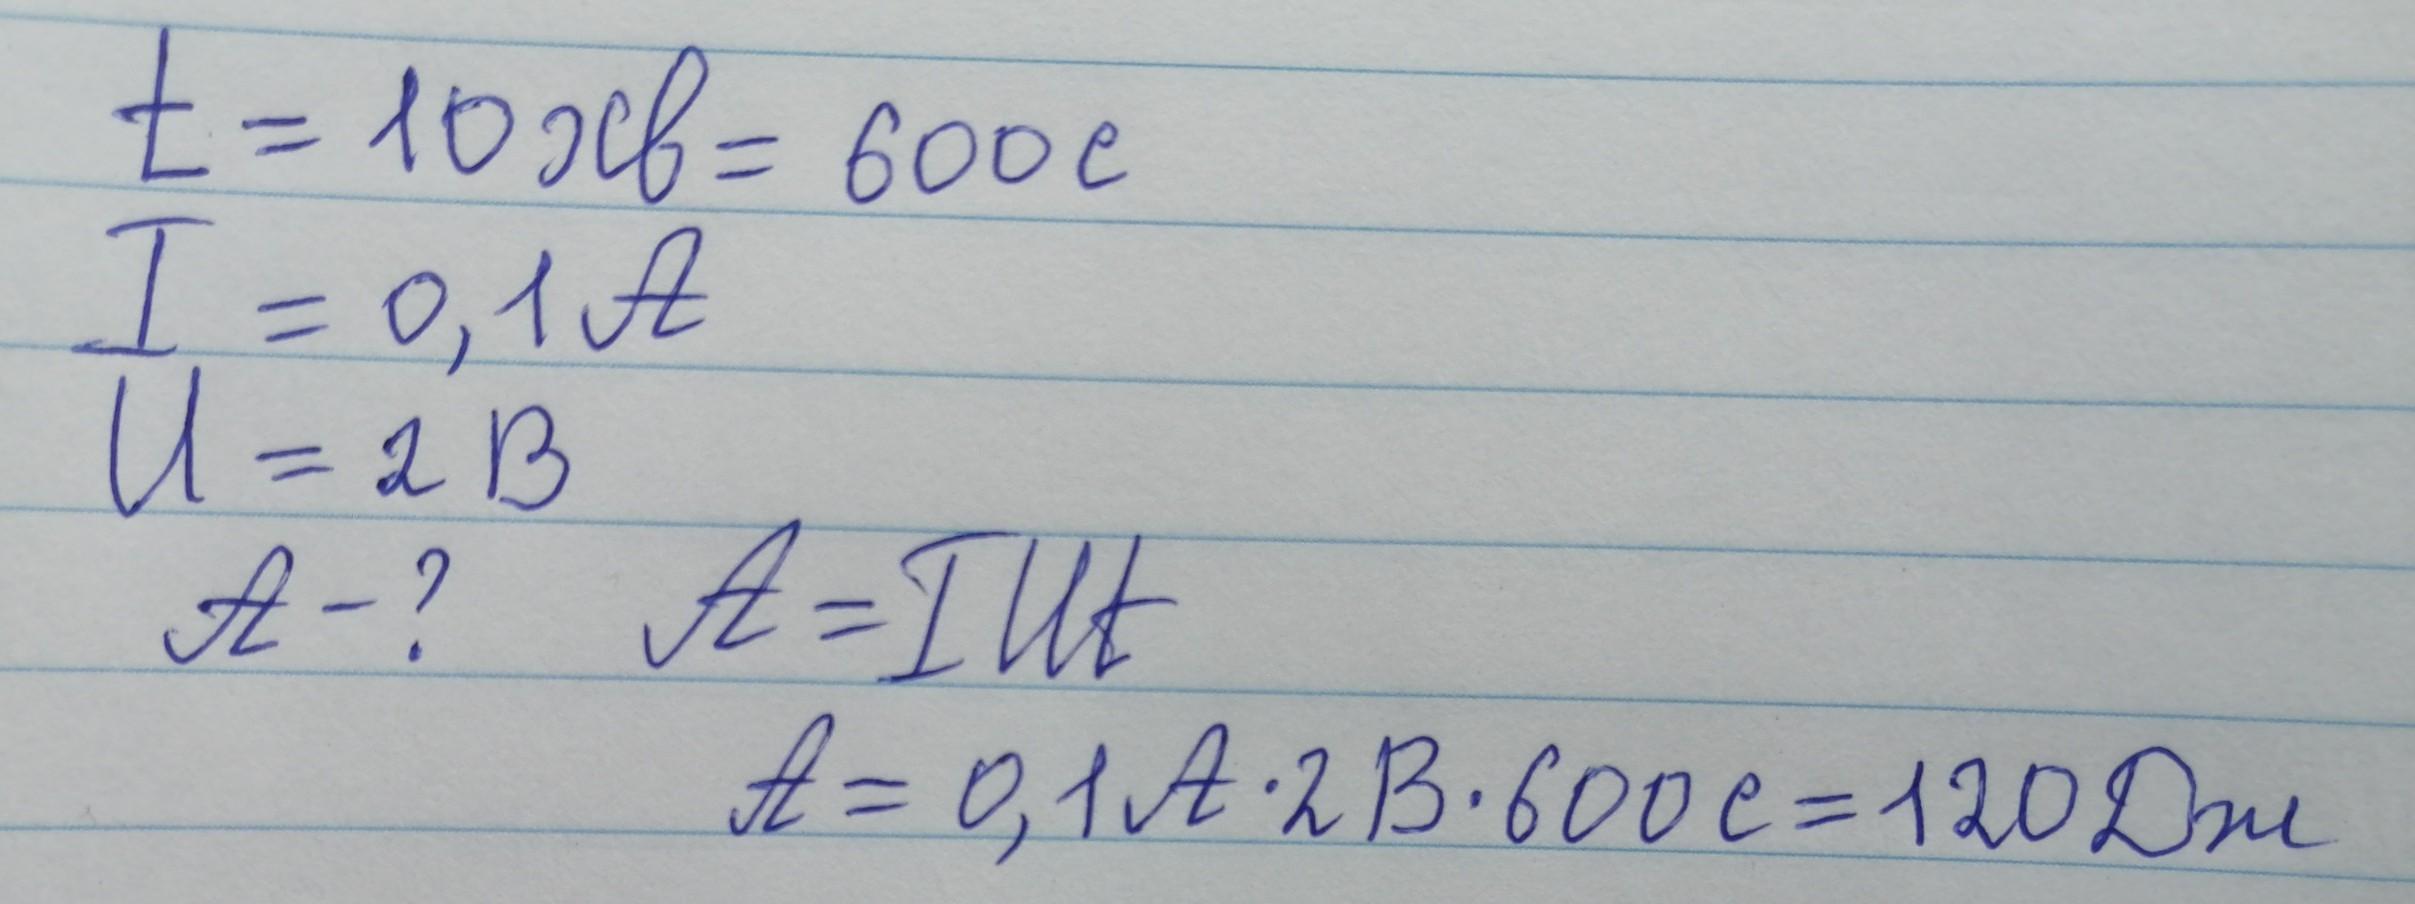 t = 10 хв = 600 с
I = 0,1 А
U = 2 В
А - ? А = IUt
А = 0,1 А · 2 В · 600 с = 120 Дж